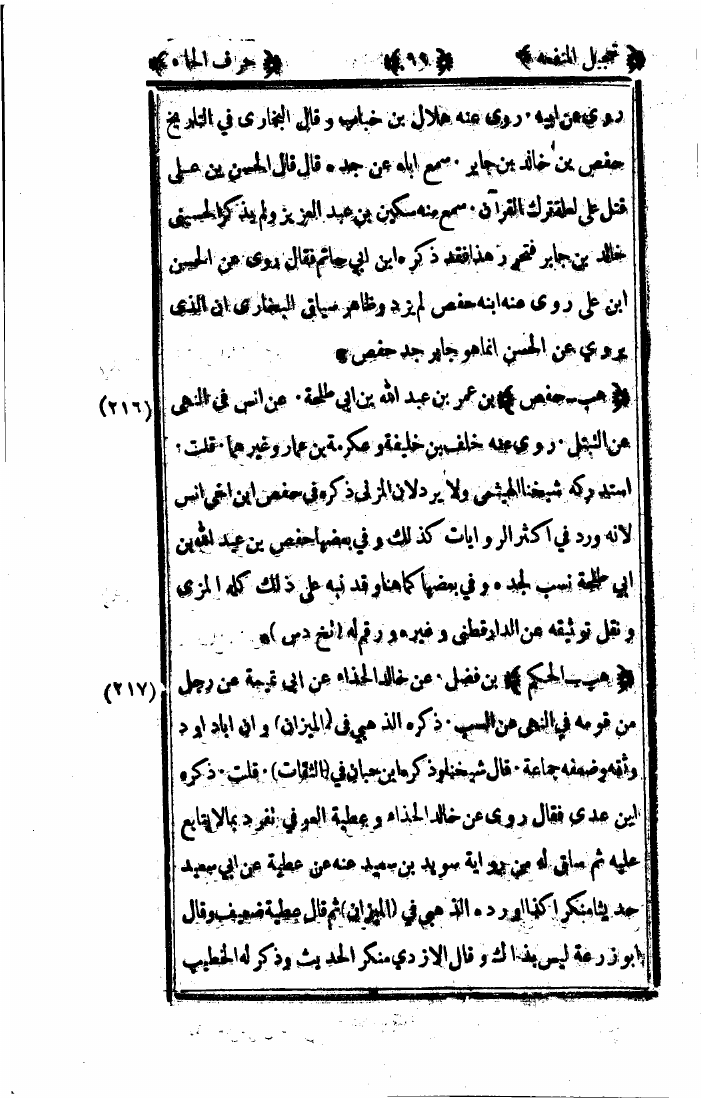 ﴿ تعجيل المنفعة ﴾ ﴿ ٩٩ ﴾ ﴿ حرف الحاء ﴾
روى عن ابيه · روى عنه هلال بن خباب وقال البخارى في التاريخ
حفص بن خالد بن جابر · سمع اباه عن جده قال قال الحسن بن على
قتل على لطقترك القرآن · سمع منه سكين بن عبد العزيز ولم يذكر الحسينى
خالد بن جابر فتحر رهذا فقد ذكره ابن ابى حاتم فقال روى عن الحسن
ابن على روى عنه ابنه حفص لم يزد وظاهر سياق البخارى ان الذى
يروى عن الحسن انما هو جابر جد حفص *
(٢١٦) ﴿ هب ـ حفص ﴾ بن عمر بن عبد الله بن ابي طلحة · عن انس في النهى
عن التبتل · روى عنه خلف بن خليفة وعكرمة بن عمار وغيرهما · قلت ·
استدركه شيخنا الهيثمى ولا يرد لان المزى ذكره في حفص ابن اخى انس
لانه ورد في اكثر الروايات كذلك وفي بعضها حفص بن عبد الله بن
ابي طلحة نسب لجده وفي بعضها كما هنا وقد نبه على ذلك كله المزى
ونقل توثيقه عن الدارقطنى وغيره ورقم له (بخ د س) *
(٢١٧) ﴿ هب ـ الحكم ﴾ بن فضل · عن خالد الحذاء عن ابى تميمة عن رجل
من قومه في النهى عن السب · ذكره الذهبي فى (الميزان) وان اباداود
وثقه وضعفه جماعة · قال شيخنا وذكره ابن حبان في (الثقات) · قلت · ذكره
ابن عدى فقال روى عن خالد الحذاء وعطية العوفي تفرد بما لا يتابع
عليه ثم ساق له من رواية سويد بن سعيد عنه عن عطية عن ابى سعيد
حديثا منكرا كذا اورده الذهبي في (الميزان) ثم قال عطية ضعيف وقال
ابو زرعة ليس بذاك وقال الازدي منكر الحديث وذكر له الخطيب